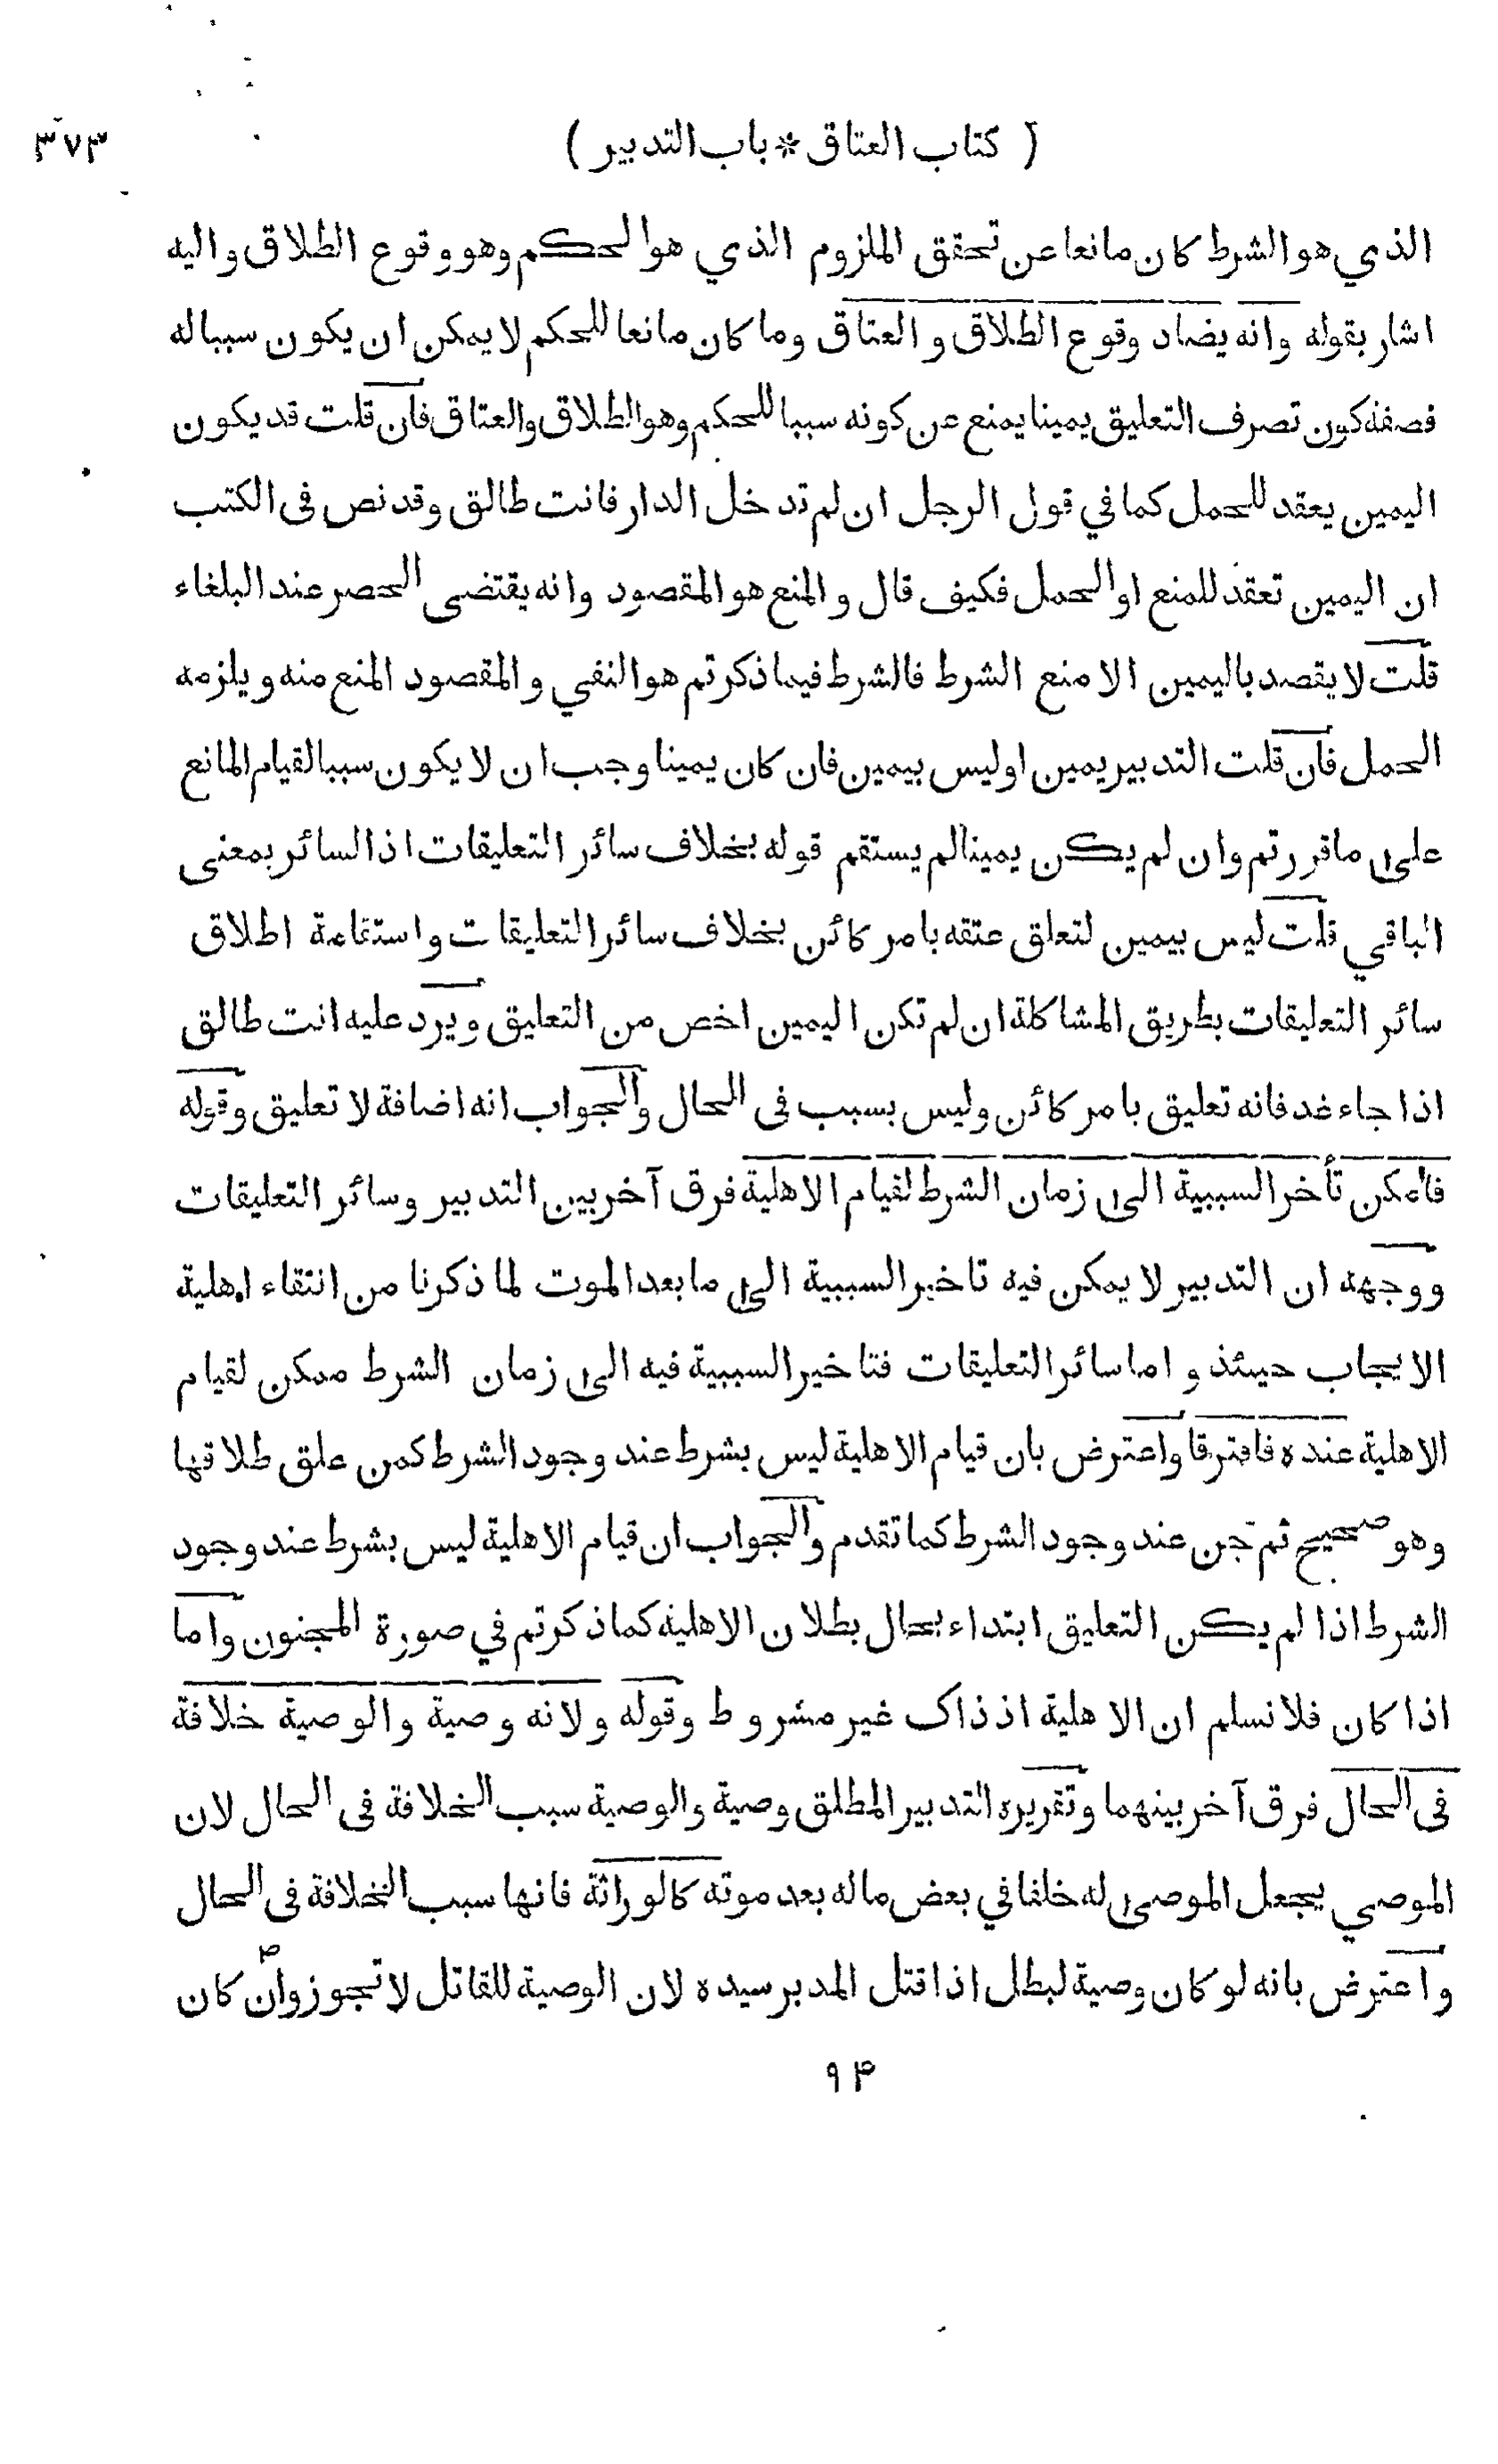 ( كتاب العتاق * باب التدبير )
٣٧٣
الذي هو الشرط كان مانعا عن تحقق الملزوم الذي هو الحكم وهو وقوع الطلاق واليه
اشار بقوله وانه يضاد وقوع الطلاق و العتاق وما كان مانعا للحكم لا يمكن ان يكون سببا له
فصفة كون تصرف التعليق يمينا يمنع عن كونه سببا للحكم وهو الطلاق والعتاق فان قلت قد يكون
اليمين يعقد للحمل كما في قول الرجل ان لم تدخل الدار فانت طالق وقد نص فى الكتب
ان اليمين تعقد للمنع او الحمل فكيف قال و المنع هو المقصود وانه يقتضى الحصر عند البلغاء
قلت لا يقصد باليمين الا منع الشرط فالشرط فيما ذكرتم هو النفي و المقصود المنع منه ويلزمه
الحمل فان قلت التدبير يمين اوليس بيمين فان كان يمينا وجب ان لا يكون سببا لقيام المانع
على ما قررتم وان لم يكن يمينا لم يستقم قوله بخلاف سائر التعليقات اذ السائر بمعنى
الباقي قلت ليس بيمين لتعلق عتقه بامر كائن بخلاف سائر التعليقات واستقامة اطلاق
سائر التعليقات بطريق المشاكلة ان لم تكن اليمين اخص من التعليق ويرد عليه انت طالق
اذا جاء غد فانه تعليق بامر كائن وليس بسبب فى الحال والجواب انه اضافة لا تعليق وقوله
فامكن تأخر السببية الى زمان الشرط لقيام الاهلية فرق آخر بين التدبير وسائر التعليقات
ووجهه ان التدبير لا يمكن فيه تاخير السببية الى ما بعد الموت لما ذكرنا من انتقاء اهلية
الايجاب حينئذ و اما سائر التعليقات فتاخير السببية فيه الى زمان الشرط ممكن لقيام
الاهلية عنده فافترقا واعترض بان قيام الاهلية ليس بشرط عند وجود الشرط كمن علق طلاقها
وهو صحيح ثم جن عند وجود الشرط كما تقدم والجواب ان قيام الاهلية ليس بشرط عند وجود
الشرط اذا لم يكن التعليق ابتداء بحال بطلان الاهلية كما ذكرتم في صورة المجنون واما
اذا كان فلا نسلم ان الاهلية اذ ذاك غير مشروط وقوله ولانه وصية والوصية خلافة
فى الحال فرق آخر بينهما وتقريره التدبير المطلق وصية والوصية سبب الخلافة فى الحال لان
الموصي يجعل الموصى له خلفا في بعض ماله بعد موته كالوراثة فانها سبب الخلافة فى الحال
واعترض بانه لو كان وصية لبطل اذا قتل المدبر سيده لان الوصية للقاتل لا تجوز وان كان
٩٤